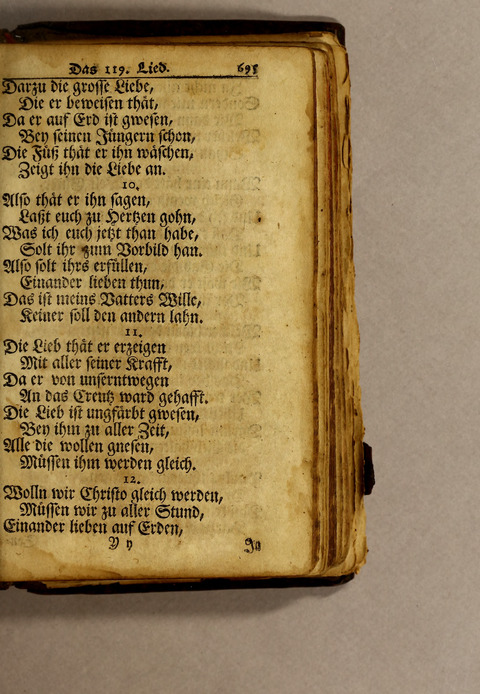 Das 119. Lied. 695
Darzu die grosse Liebe,
Die er beweisen thät,
Da er auf Erd ist gwesen,
Bey seinen Jüngern schon,
Die Füß thät er ihn wäschen,
Zeigt ihn die Liebe an.
10.
Also thät er ihn sagen,
Laßt euch zu Hertzen gohn,
Was ich euch jetzt than habe,
Solt ihr zum Vorbild han.
Also solt ihrs erfüllen,
Einander lieben thun,
Das ist meins Vatters Wille,
Keiner soll den andern lahn.
11.
Die Lieb thät er erzeigen
Mit aller seiner Krafft,
Da er von unserntwegen
An das Creutz ward gehafft.
Die Lieb ist ungfärbt gwesen,
Bey ihm zu aller Zeit,
Alle die wollen gnesen,
Müssen ihm werden gleich.
12.
Wolln wir Christo gleich werden,
Müssen wir zu aller Stund,
Einander lieben auf Erden,
Y y Ja